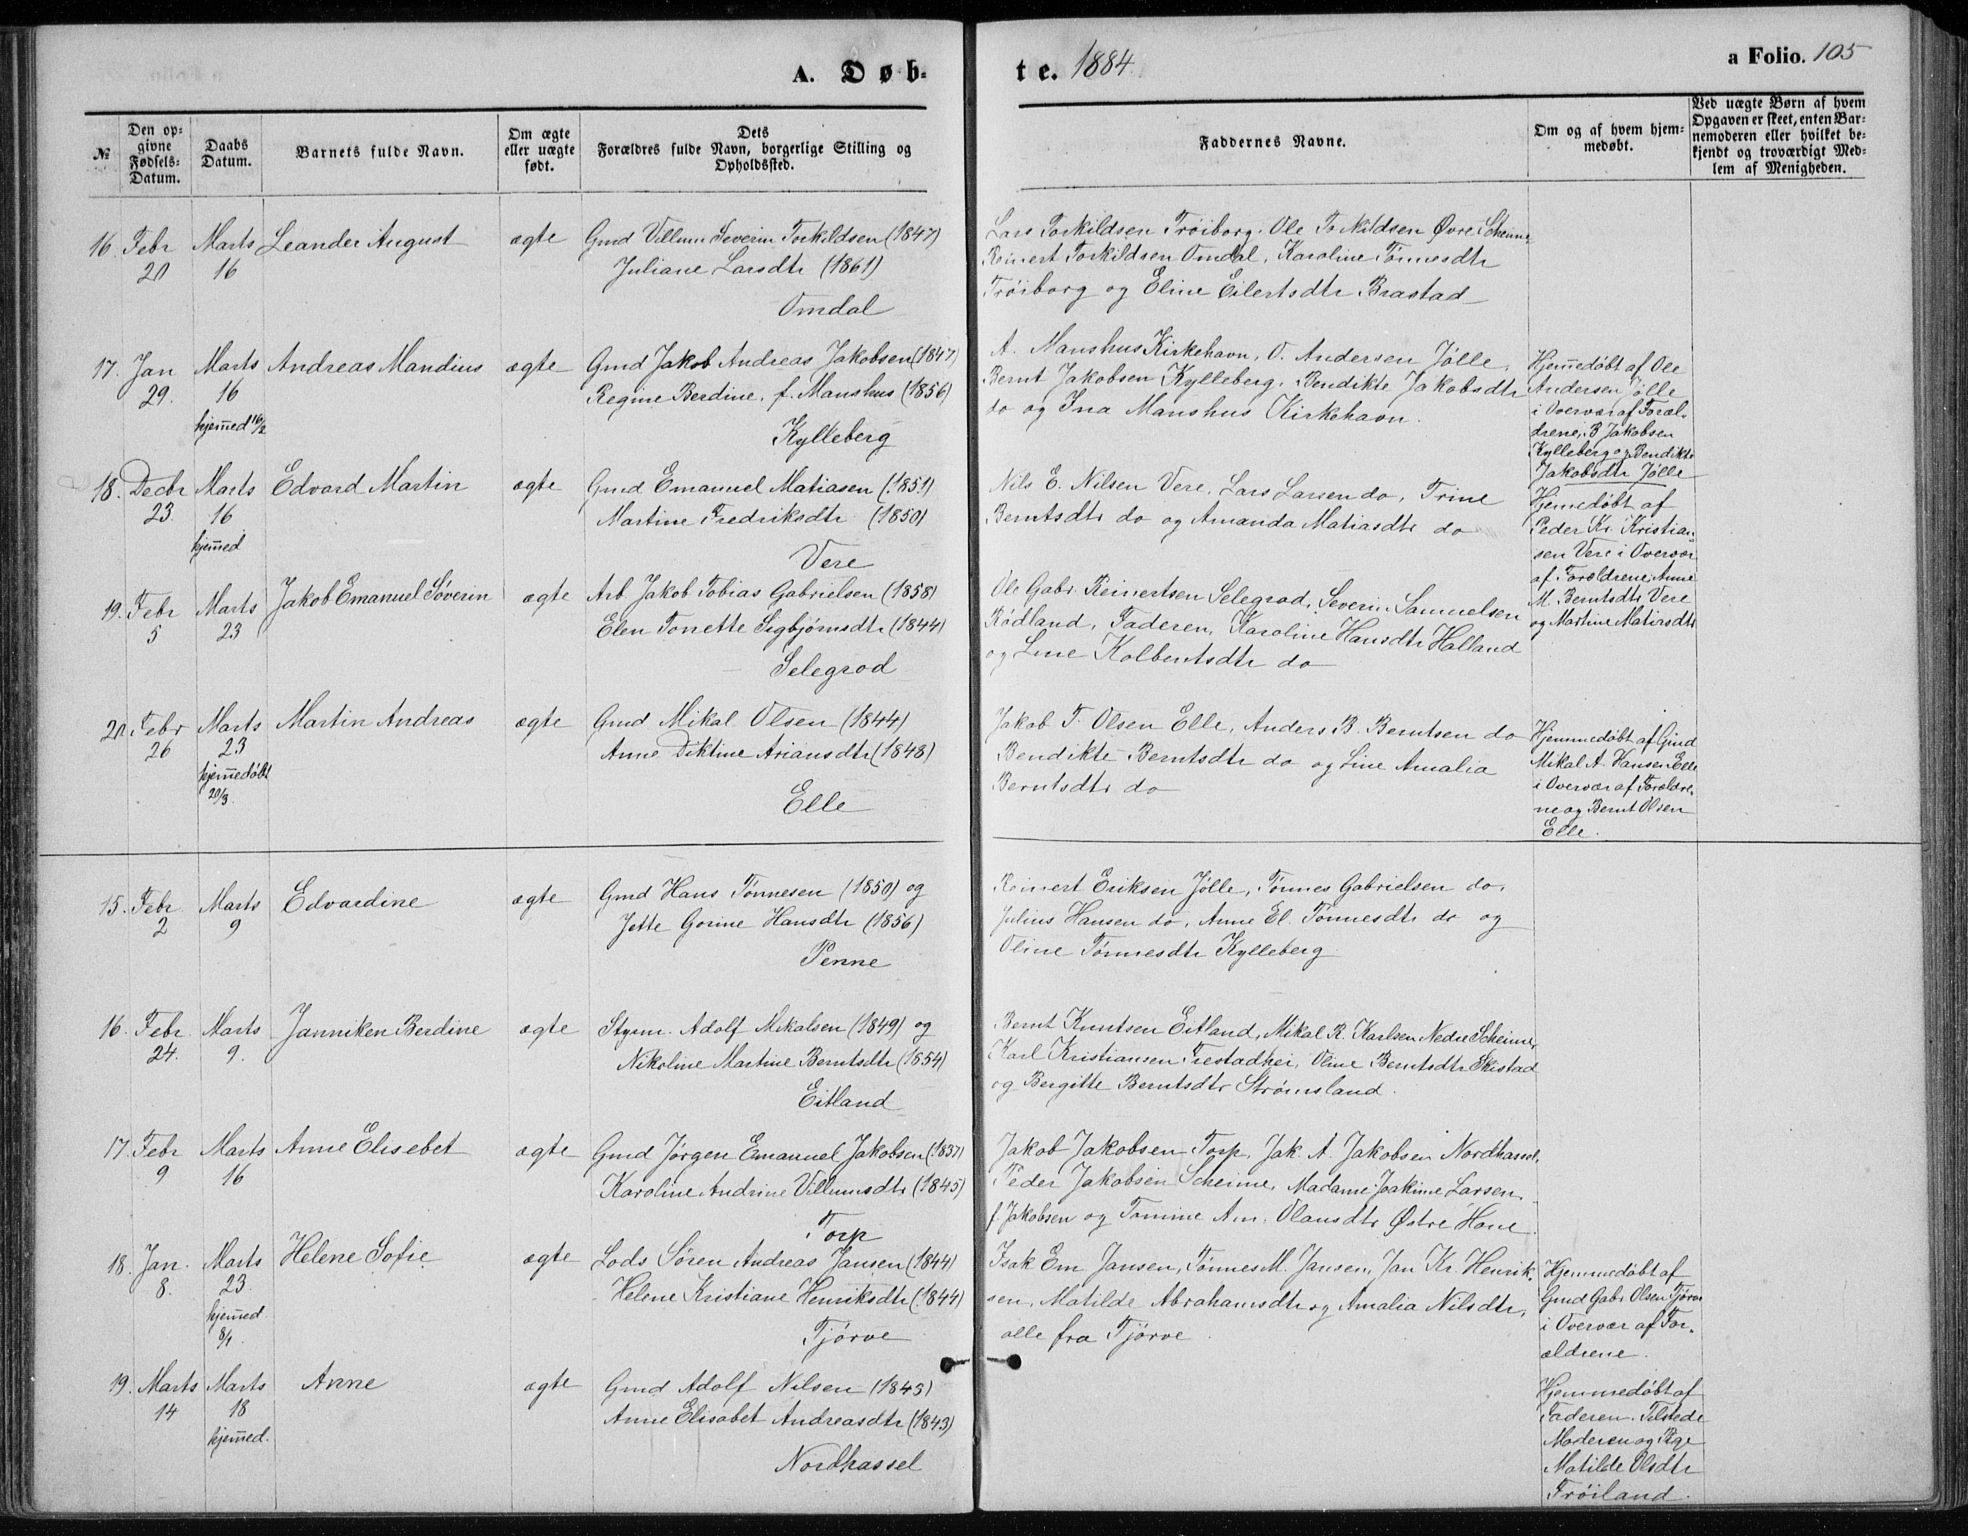 A. Døb-
te. 1884.
a Folio. 105
№
Den opgivne Fødsels-Datum.
Daabs Datum.
Barnets fulde Navn.
Om ægte eller uægte født.
Dets Forældres fulde Navn, borgerlige Stilling og Opholdssted.
Faddernes Navne.
Om og af hvem hjemmedøbt.
Ved uægte Børn af hvem Opgaven er skeet, enten Barnemoderen eller hvilket bekjendt og troværdigt Medlem af Menigheden.
16. Febr 20
Marts 16
Leander August
ægte
Gmd Villum Severin Torkildsen (1847)
Juliane Larsdtr (1861)
Omdal
Lars Torkildsen Trøiborg. Ole Torkildsen Øvre Scheime
Reinert Torkildsen Omdal, Karoline Tønnesdtr
Trøiborg og Eline Eilertsdtr Brastad
17. Jan 29.
Marts 16
hjemed 16/2
Andreas Mandius
ægte
Gmd Jakob Andreas Jakobsen (1847)
Regine Berdine, f. Manshus (1856)
Kylleberg
A. Manshus Kirkehavn, O. Andersen Jølle,
Bernt Jakobsen Kylleberg, Bendikte Jakobsdtr
do og Ina Manshus Kirkehavn.
Hjemedøbt af Ole
Andersen Jølle
i Overvær af Foræl-
drene, B Jakobsen
Kylleberg og Bendikte
Jakobsdtr Jølle
18. Decbr 23.
Marts 16
hjemed
Edvard Martin
ægte
Gmd Emanuel Matiasen (1851)
Martine Fredriksdtr (1850)
Vere
Nils E. Nilsen Vere, Lars Larsen do, Trine
Berntsdtr do og Amanda Matiasdtr do
Hjemedøbt af
Peder Kr. Kristian-
sen Vere i Overvær
af Forældrene, Anne
M. Berntsdtr Vere
og Martine Matiasdtr
19. Febr 5
Marts 23
Jakob Emanuel Søverin
ægte
Arb. Jakob Tobias Gabrielsen (1858)
Elen Tonette Sigbjørnsdtr (1844)
Selegrod
Ole Gabr. Reinertsen Selegrod, Severin Samuelsen
Rødland, Faderen, Karoline Hansdtr Halland
og Line Kolbentsdtr do
20 Febr 26
Marts 23
hjemedøbt 20/3.
Martin Andreas
ægte
Gmd Mikal Olsen (1844)
Anne Diktine Ariansdtr (1848)
Elle
Jakob T. Olsen Elle, Anders B. Berntsen do
Bendikte Berntsdtr do og Line Amalia
Berntsdtr do
Hjemmedøbt af Gmd
Mikal A. Hansen Elle
i Overvær af Forældre-
ne og Bernt Olsen
Elle.
15. Febr. 2
Marts 9
Edvardine
ægte
Gmd Hans Tønnesen (1850) og
Jette Gorine Hansdtr (1856)
Penne
Reinert Eriksen Jølle, Tønnes Gabrielsen do.
Julius Hansen do, Anne El. Tønnesdtr do og
Oline Tønnesdtr Kylleberg
16. Febr. 24.
Marts 9.
Janniken Berdine
ægte
Styrm. Adolf Mikalsen (1849) og
Nikoline Martine Berntsdtr (1854)
Eitland
Bernt Knutsen Eitland, Mikal R. Karlsen Nedre Scheime,
Karl Kristiansen Trestadhei, Oline Berntsdtr Skistad
og Bergitte Berntsdtr Strømsland.
17. Febr 9
Marts 16
Anne Elisebet
ægte
Gmd Jørgen Emanuel Jakobsen (1837)
Karoline Andrine Villumsdtr (1845)
Torp
Jakob Jakobsen Torp, Jak. A. Jakobsen Nordhassel,
Peder Jakobsen Scheime, Madame Joakime Larsen
f. Jakobsen og Tomine Am. Olausdtr Østre Hone
18. Jan. 8.
Marts 23.
hjemed 8/1.
Helene Sofie
ægte
Lods Søren Andreas Jansen (1844)
Helene Kristiane Henriksdtr (1844)
Tjørve
Isak Em Jansen, Tønnes M. Jansen, Jan Kr. Henrik-
sen, Matilde Abrahamsdtr og Amalia Nilsdtr,
alle fra Tjørve.
Hjemmedøbt af
Gmd Gabr Olsen Tjørve
i Overvær af For-
ældrene.
19. Marts 14
Marts 18
hjemed.
Anne
ægte
Gmd Adolf Nilsen (1843)
Anne Elisabet Andreasdtr (1843)
Nordhassel
Hjemmedøbt af
Faderen. Tilstede
Moderen og Pige
Matilde Olsdtr
Trøiland.